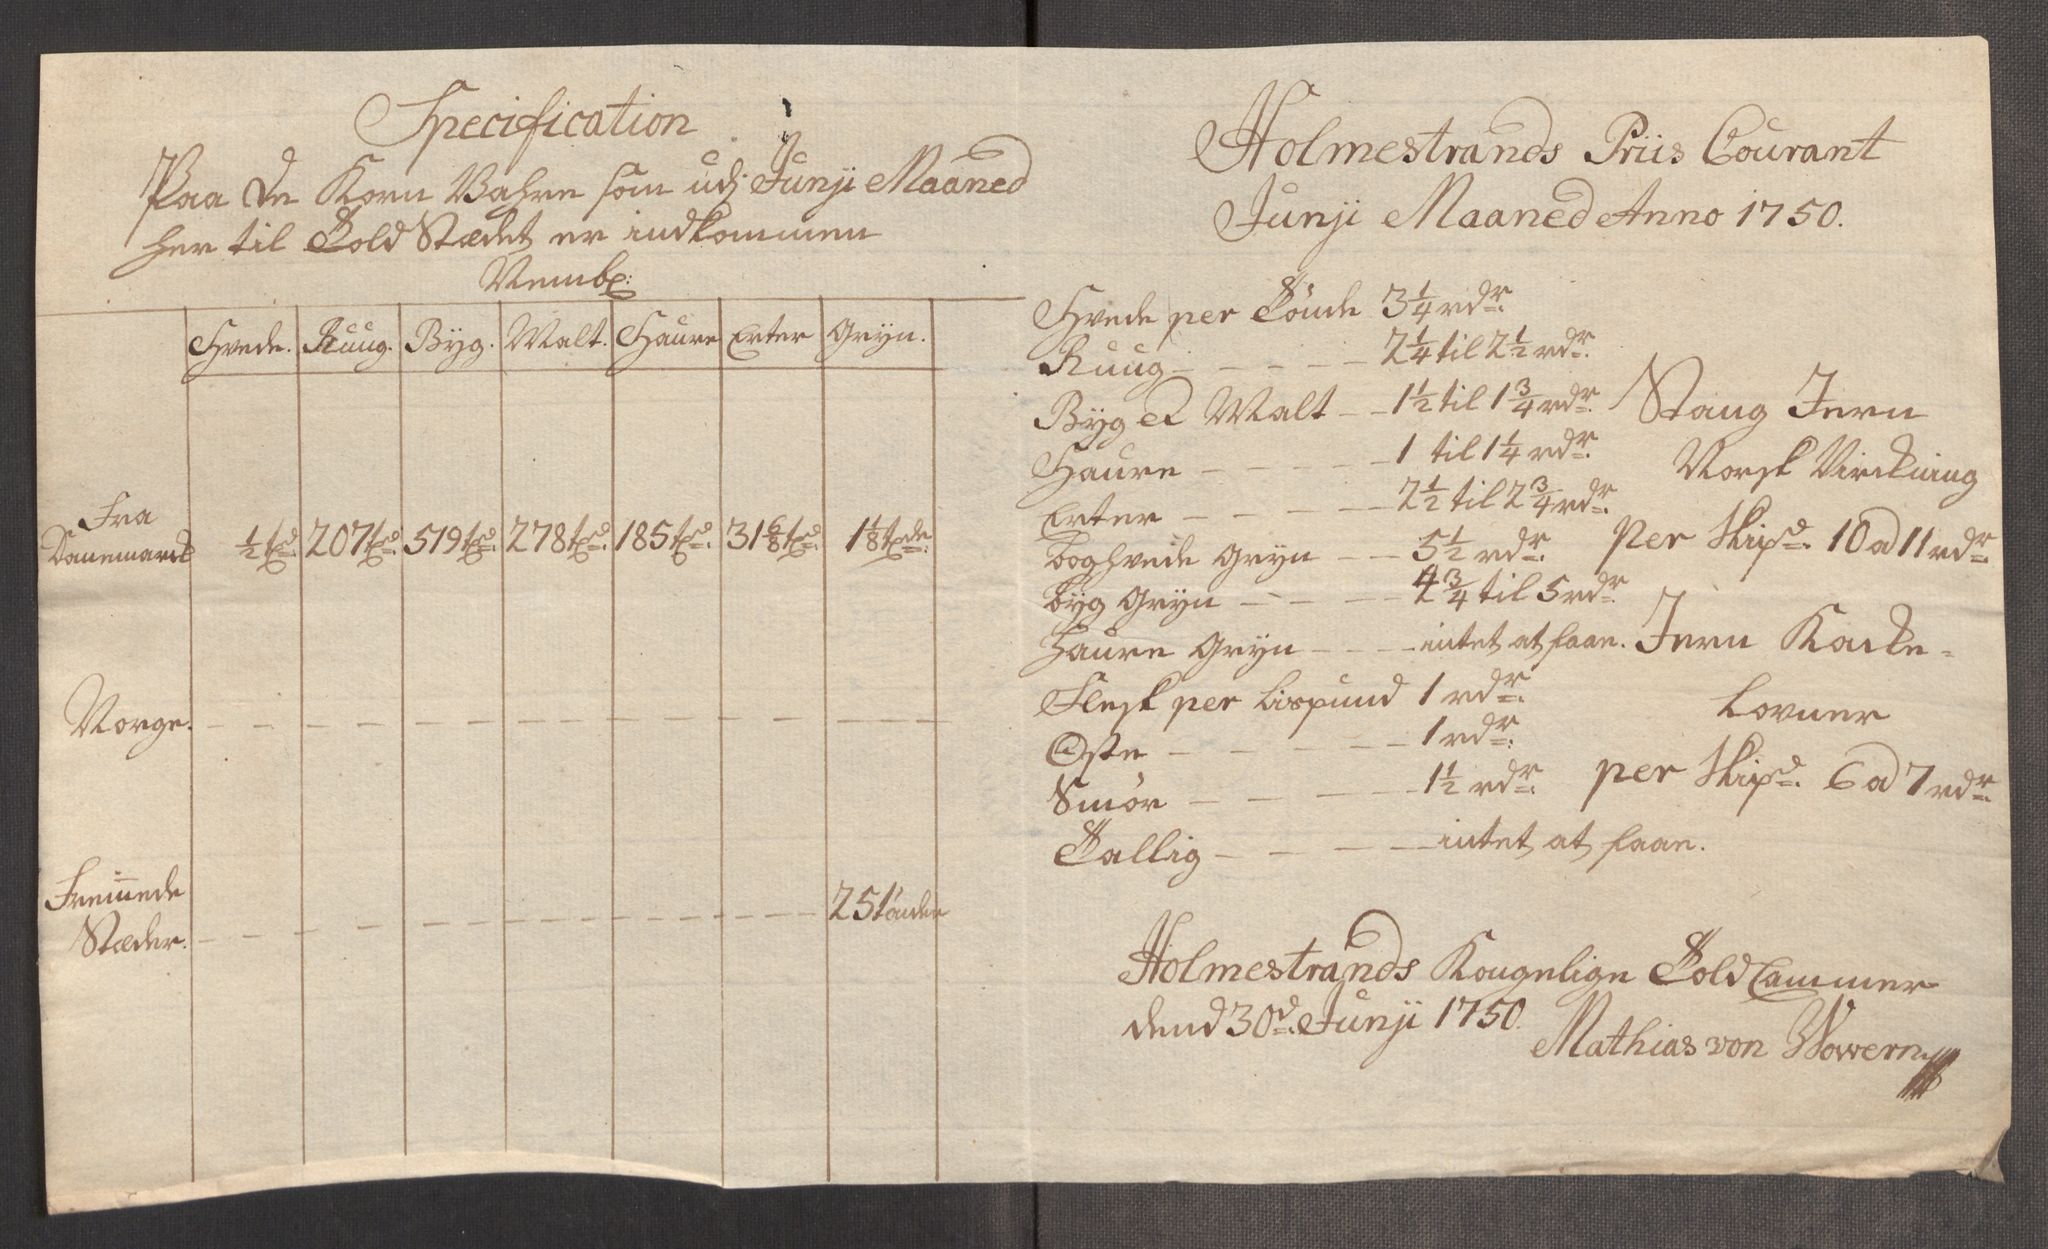 Specification
Paa de Korn Vahre som udj Junji Maaned
her til Told Stædet er indkommen
Nembl:
Hvede. Ruug. Byg. Malt. Haure Erter Gryn.
Fra
Danemarck ½ td. 207 td. 519 td. 278 td. 185 td. 31 6/8 td. 1 1/8 tde.
Norge. — — — — — — —
Fremede
Stæder. — — — — — — 25 tønder
Holmestrands Priis Courant
Junji Maaned Anno 1750.
Hvede per Tönde 3¼ rdr.
Ruug — — — — 2¼ til 2½ rdr.
Byg et Malt — — 1½ til 1¾ rdr.
Haure — — — — 1 til 1¼ rdr.
Erter — — — — 2½ til 2¾ rdr.
boghvede Gryn — — 5½ rdr.
byg Gryn — — — 4¾ til 5 rdr.
Haure Gryn — — — intet at faae.
Flesk per Lispund 1 rdr.
Oste — — — — 1 rdr.
Smör — — — — 1½ rdr.
Tallig — — — — intet at faae.
Stang Jern
Norsk Virckning
per Skipd. 10 a 11 rdr.
Jern Kackel-
Lovner
per Skipd. 6 a 7 rdr.
Holmestrands Kongelige Told Cammer
dend 30d. Junji 1750.
Mathias von Wowern